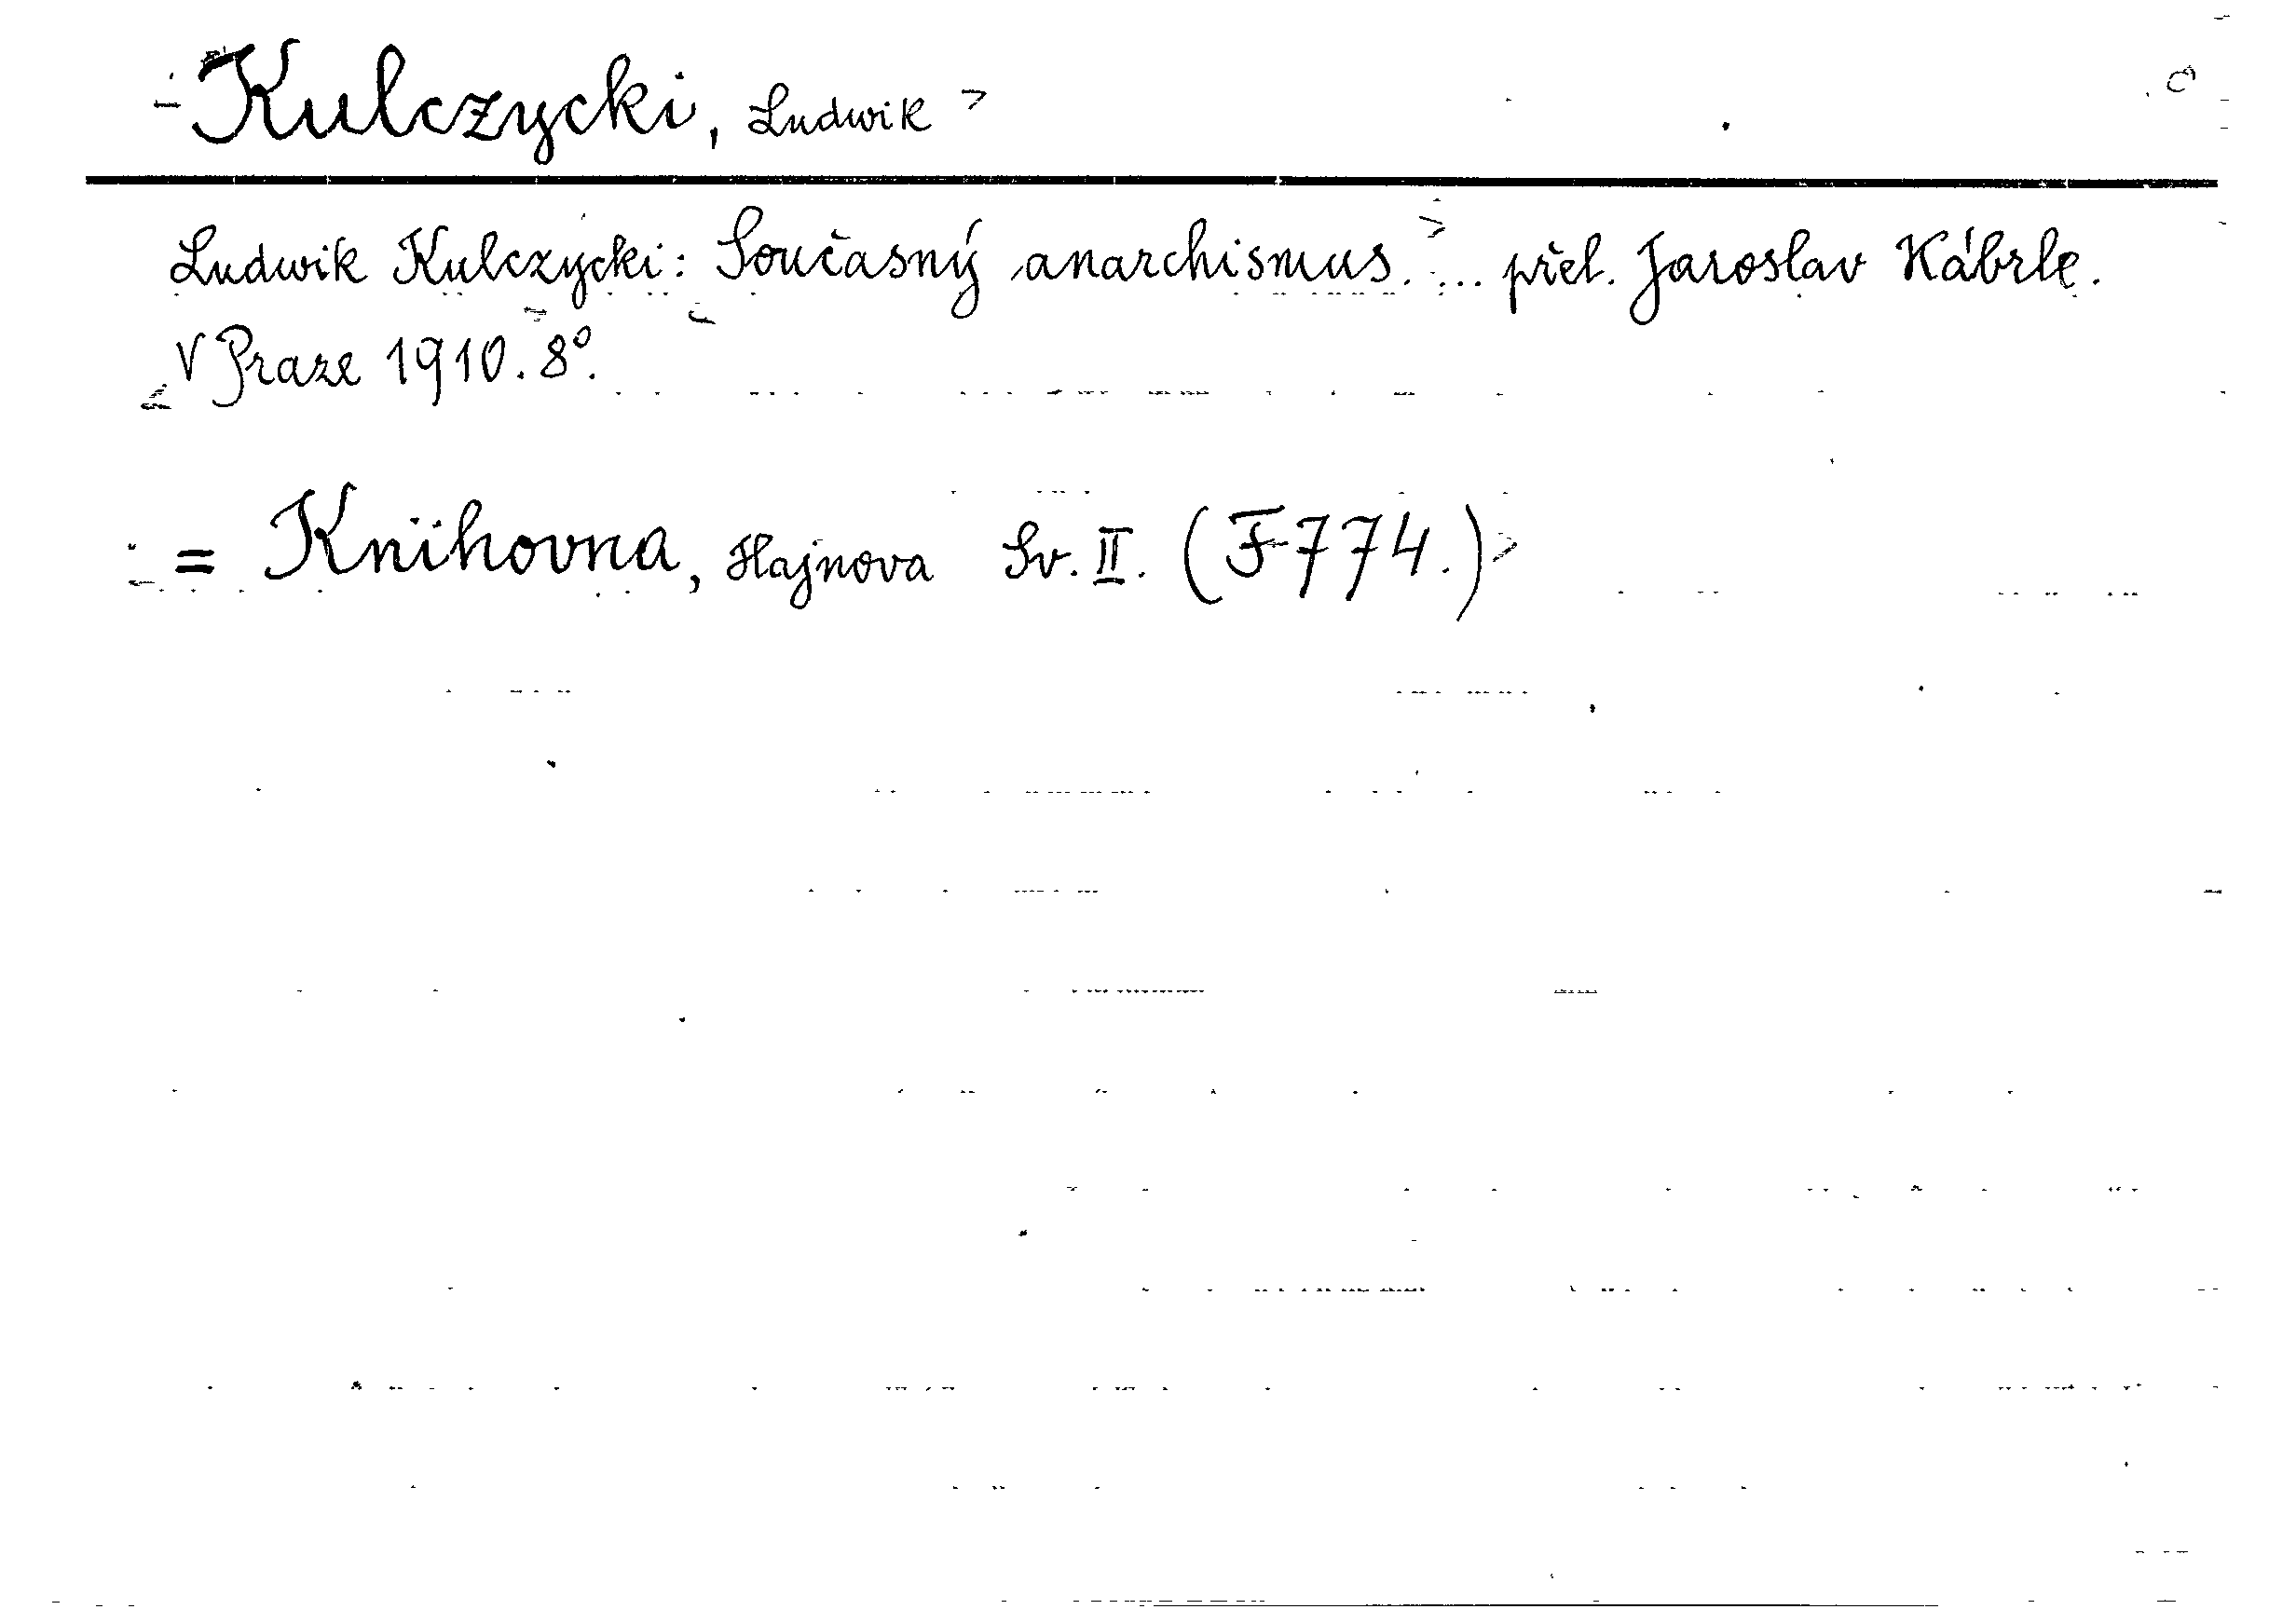 Kulczycki, Ludwik
Ludwik Kulczycki: Současný anarchismus. ... přel. Jaroslav Kábrle.
V Praze 1910. 8°.
= Knihovna, Hajnova Sv. II. (F774.)